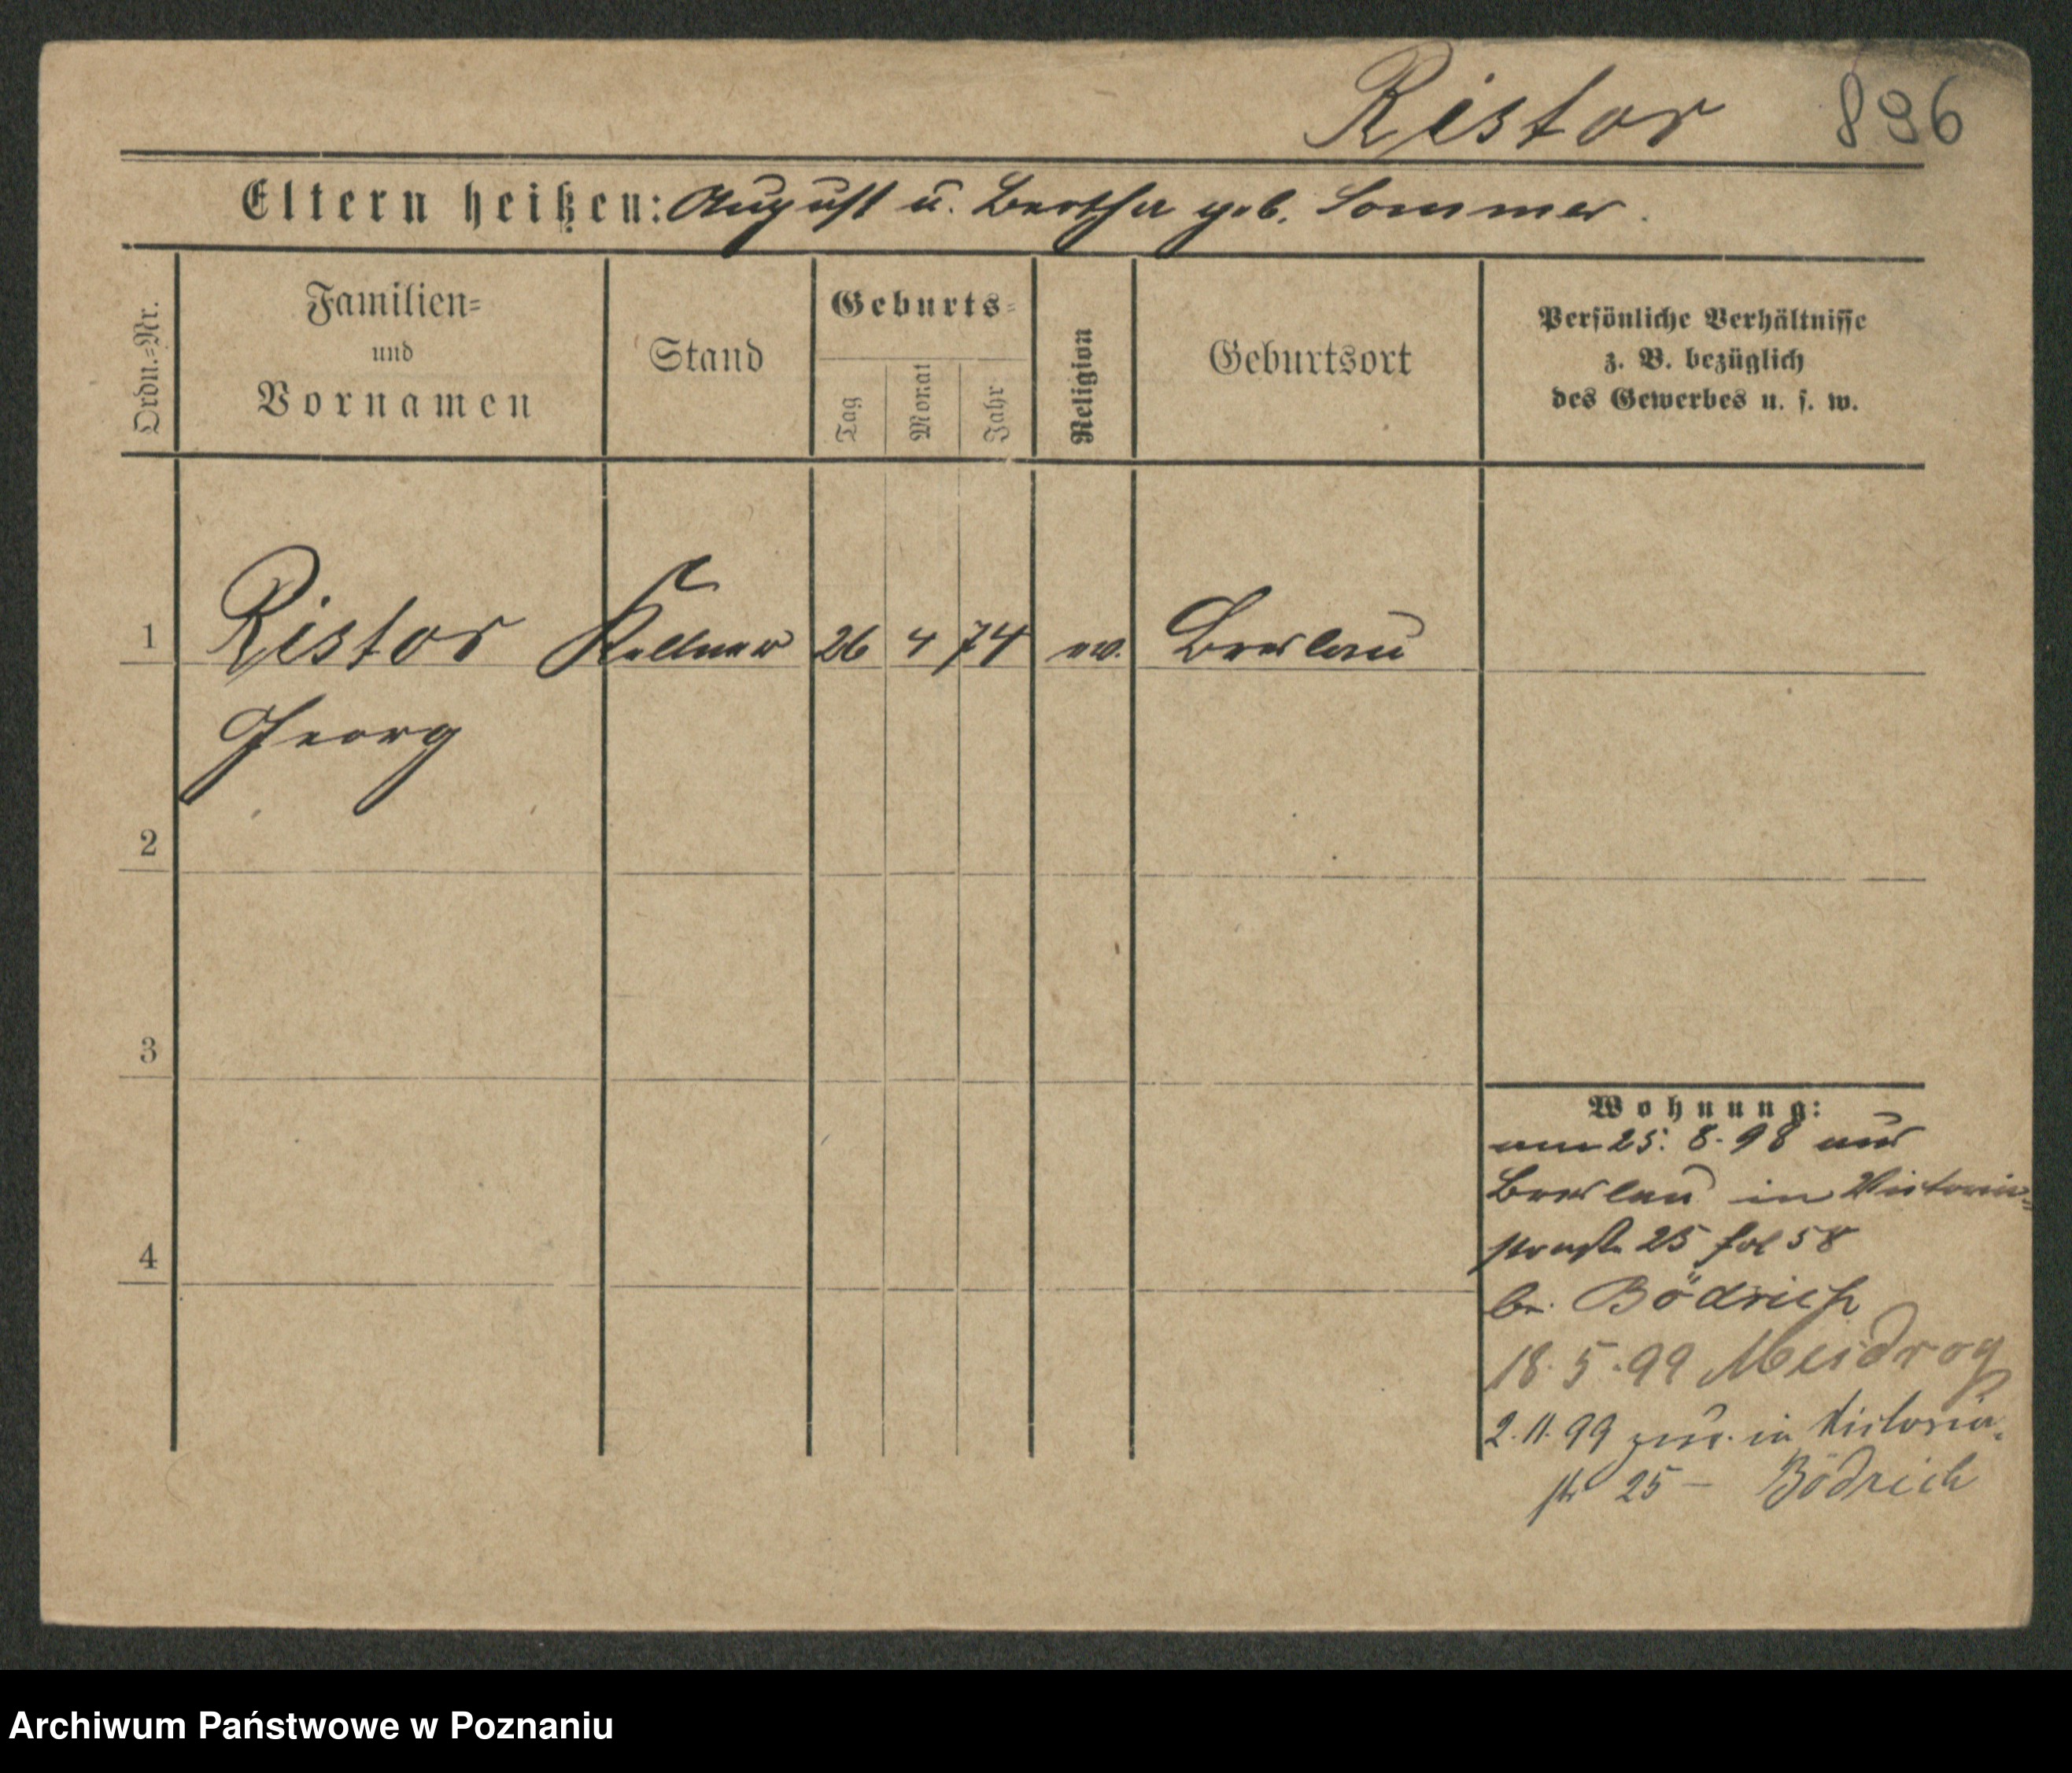 Ristor 896
Eltern heißen: August u. Bertha geb. Sommer.
Ordn.=Nr.
Familien=
und
Vornamen
Stand
Geburts=
Tag
Monat
Jahr
Religion
Geburtsort
Persönliche Verhältnisse
z. B. bezüglich
des Gewerbes u. s. w.
1 Ristor Kellner 26 4 74 ev. Breslau
Georg
2
3
4
Wohnung:
am 25. 8. 98 aus
Breslau in Victoria=
straße 25 fol 58
bei Bödrich
18. 5. 99 Misdroy
2. 11. 99 zur. in Victoria-
str 25 – Bödrich
Archiwum Państwowe w Poznaniu